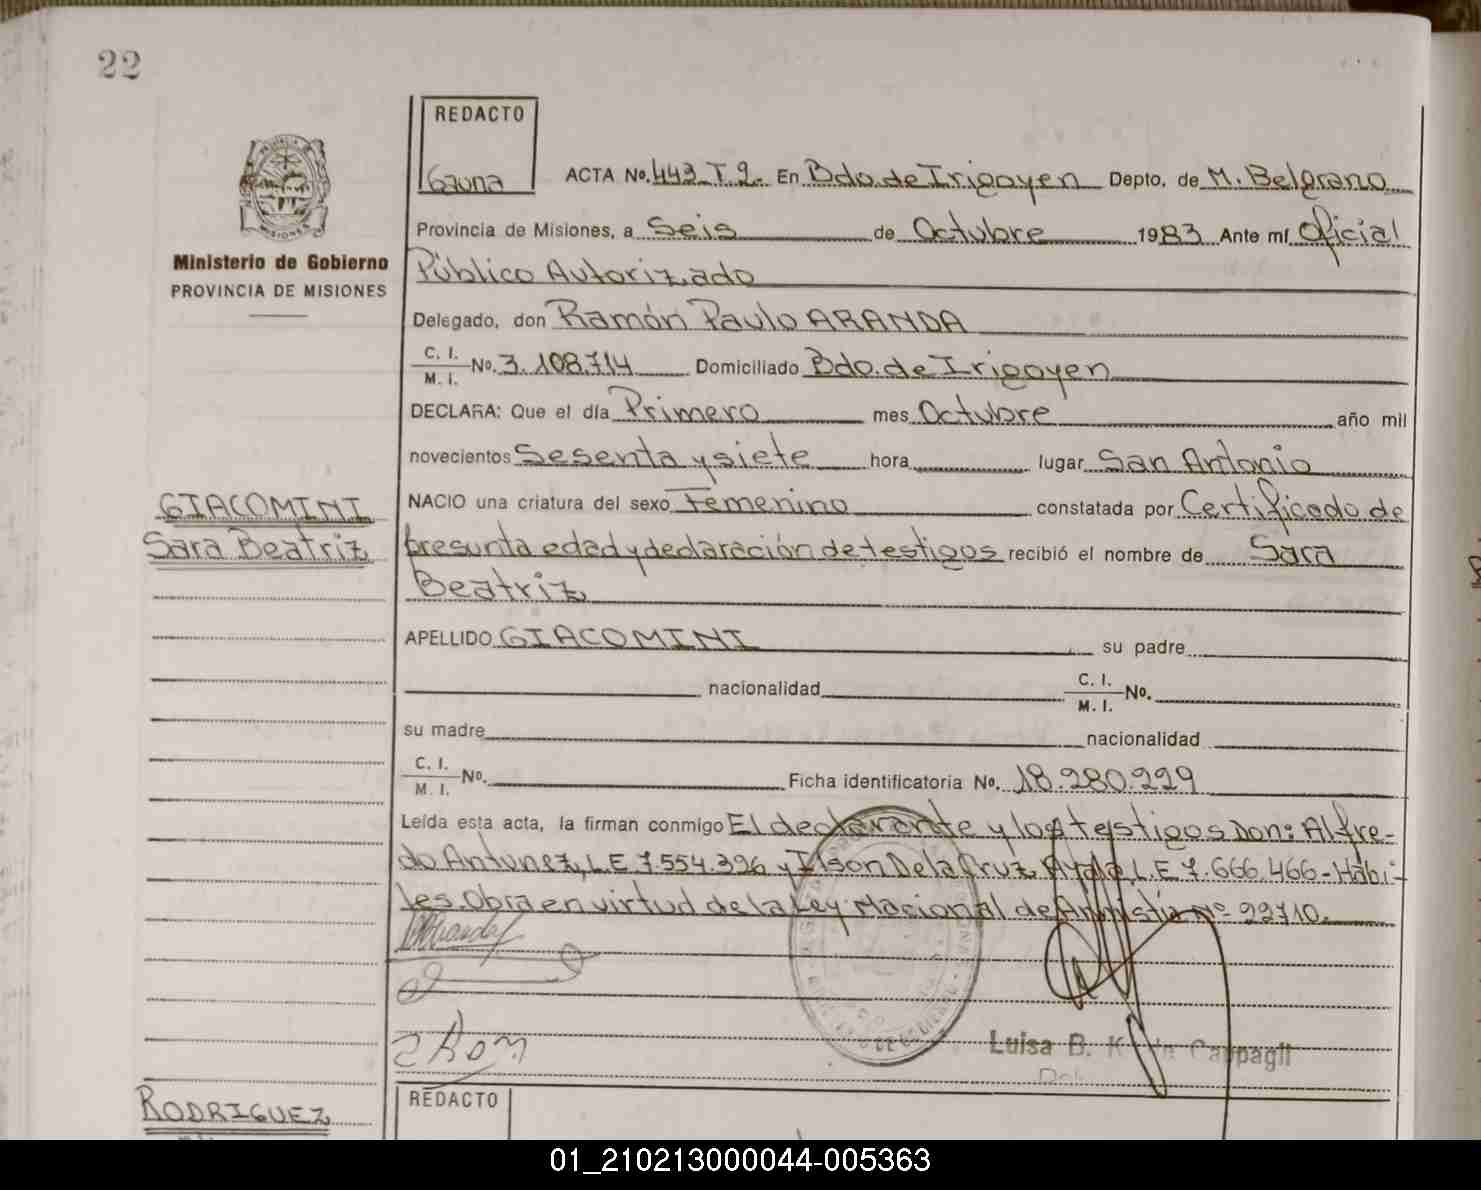 22
REDACTO
Gauna
ACTA No. 443 T 2. En Bdo. de Irigoyen Depto. de M. Belgrano
Provincia de Misiones, a Seis de Octubre 1983 Ante mí Oficial
Público Autorizado
Ministerio de Gobierno
PROVINCIA DE MISIONES
Delegado, don Ramón Paulo ARANDA
C. I.
M. I. No. 3.108.714 Domiciliado Bdo. de Irigoyen
DECLARA: Que el día Primero mes Octubre año mil
novecientos Sesenta y siete hora lugar San Antonio
GIACOMINI
Sara Beatriz
NACIO una criatura del sexo Femenino constatada por Certificado de
presunta edad y declaración de testigos recibió el nombre de Sara
Beatriz
APELLIDO GIACOMINI su padre
nacionalidad C. I.
M. I. No.
su madre nacionalidad
C. I.
M. I. No. Ficha identificatoria No. 18.280.229
Leída esta acta, la firman conmigo El declarante y los testigos Don: Alfre-
do Antunez, L.E 7.554.396 y Ilson De la Cruz Ayala L.E 7.666.466 - Hábi-
les. Obra en virtud de la Ley Nacional de Amnistía Nº 22710.
Luisa B. Cappagli
RODRIGUEZ
REDACTO
01_210213000044-005363